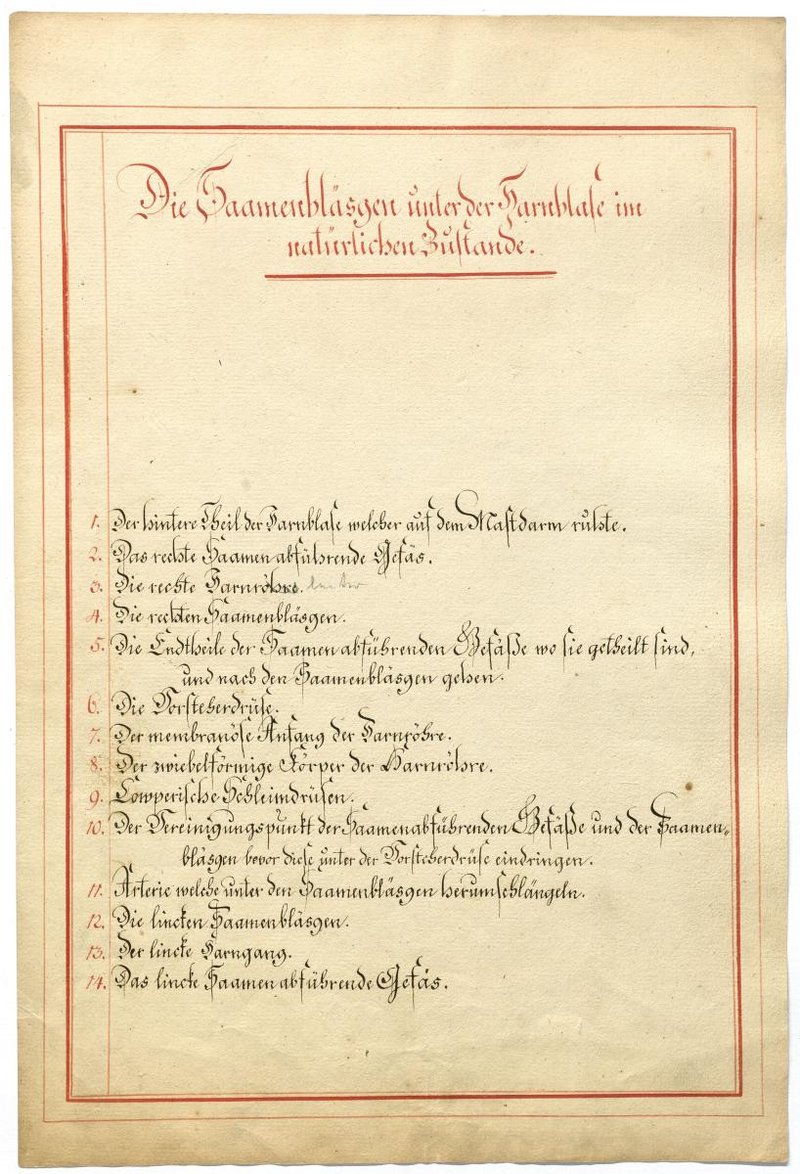 Die Saamenbläsgen unter der Harnblase im
natürlichen Zustande.
1. Der hintere Theil der Harnblase welcher auf dem Mastdarm ruhte.
2. Das rechte Saamen abführende Gefäs.
3. Die rechte Harnröhre.
4. Die rechten Saamenbläsgen.
5. Die Endtheile der Saamen abführenden Gefäße wo sie getheilt sind,
und nach den Saamenbläsgen gehen.
6. Die Vorsteherdrüse.
7. Der membranöse Anfang der Harnröhre.
8. Der zwiebelförmige Körper der Harnröhre.
9. Cowperische Schleimdrüsen.
10. Der Vereinigungspunkt der Saamenabführenden Gefäße und der Saamen-
bläsgen bevor diese unter der Vorsteherdrüse eindringen.
11. Arterie welche unter den Saamenbläsgen herumschlängeln.
12. Die lincken Saamenbläsgen.
13. Der lincke Harngang.
14. Das lincke Saamen abführende Gefäs.